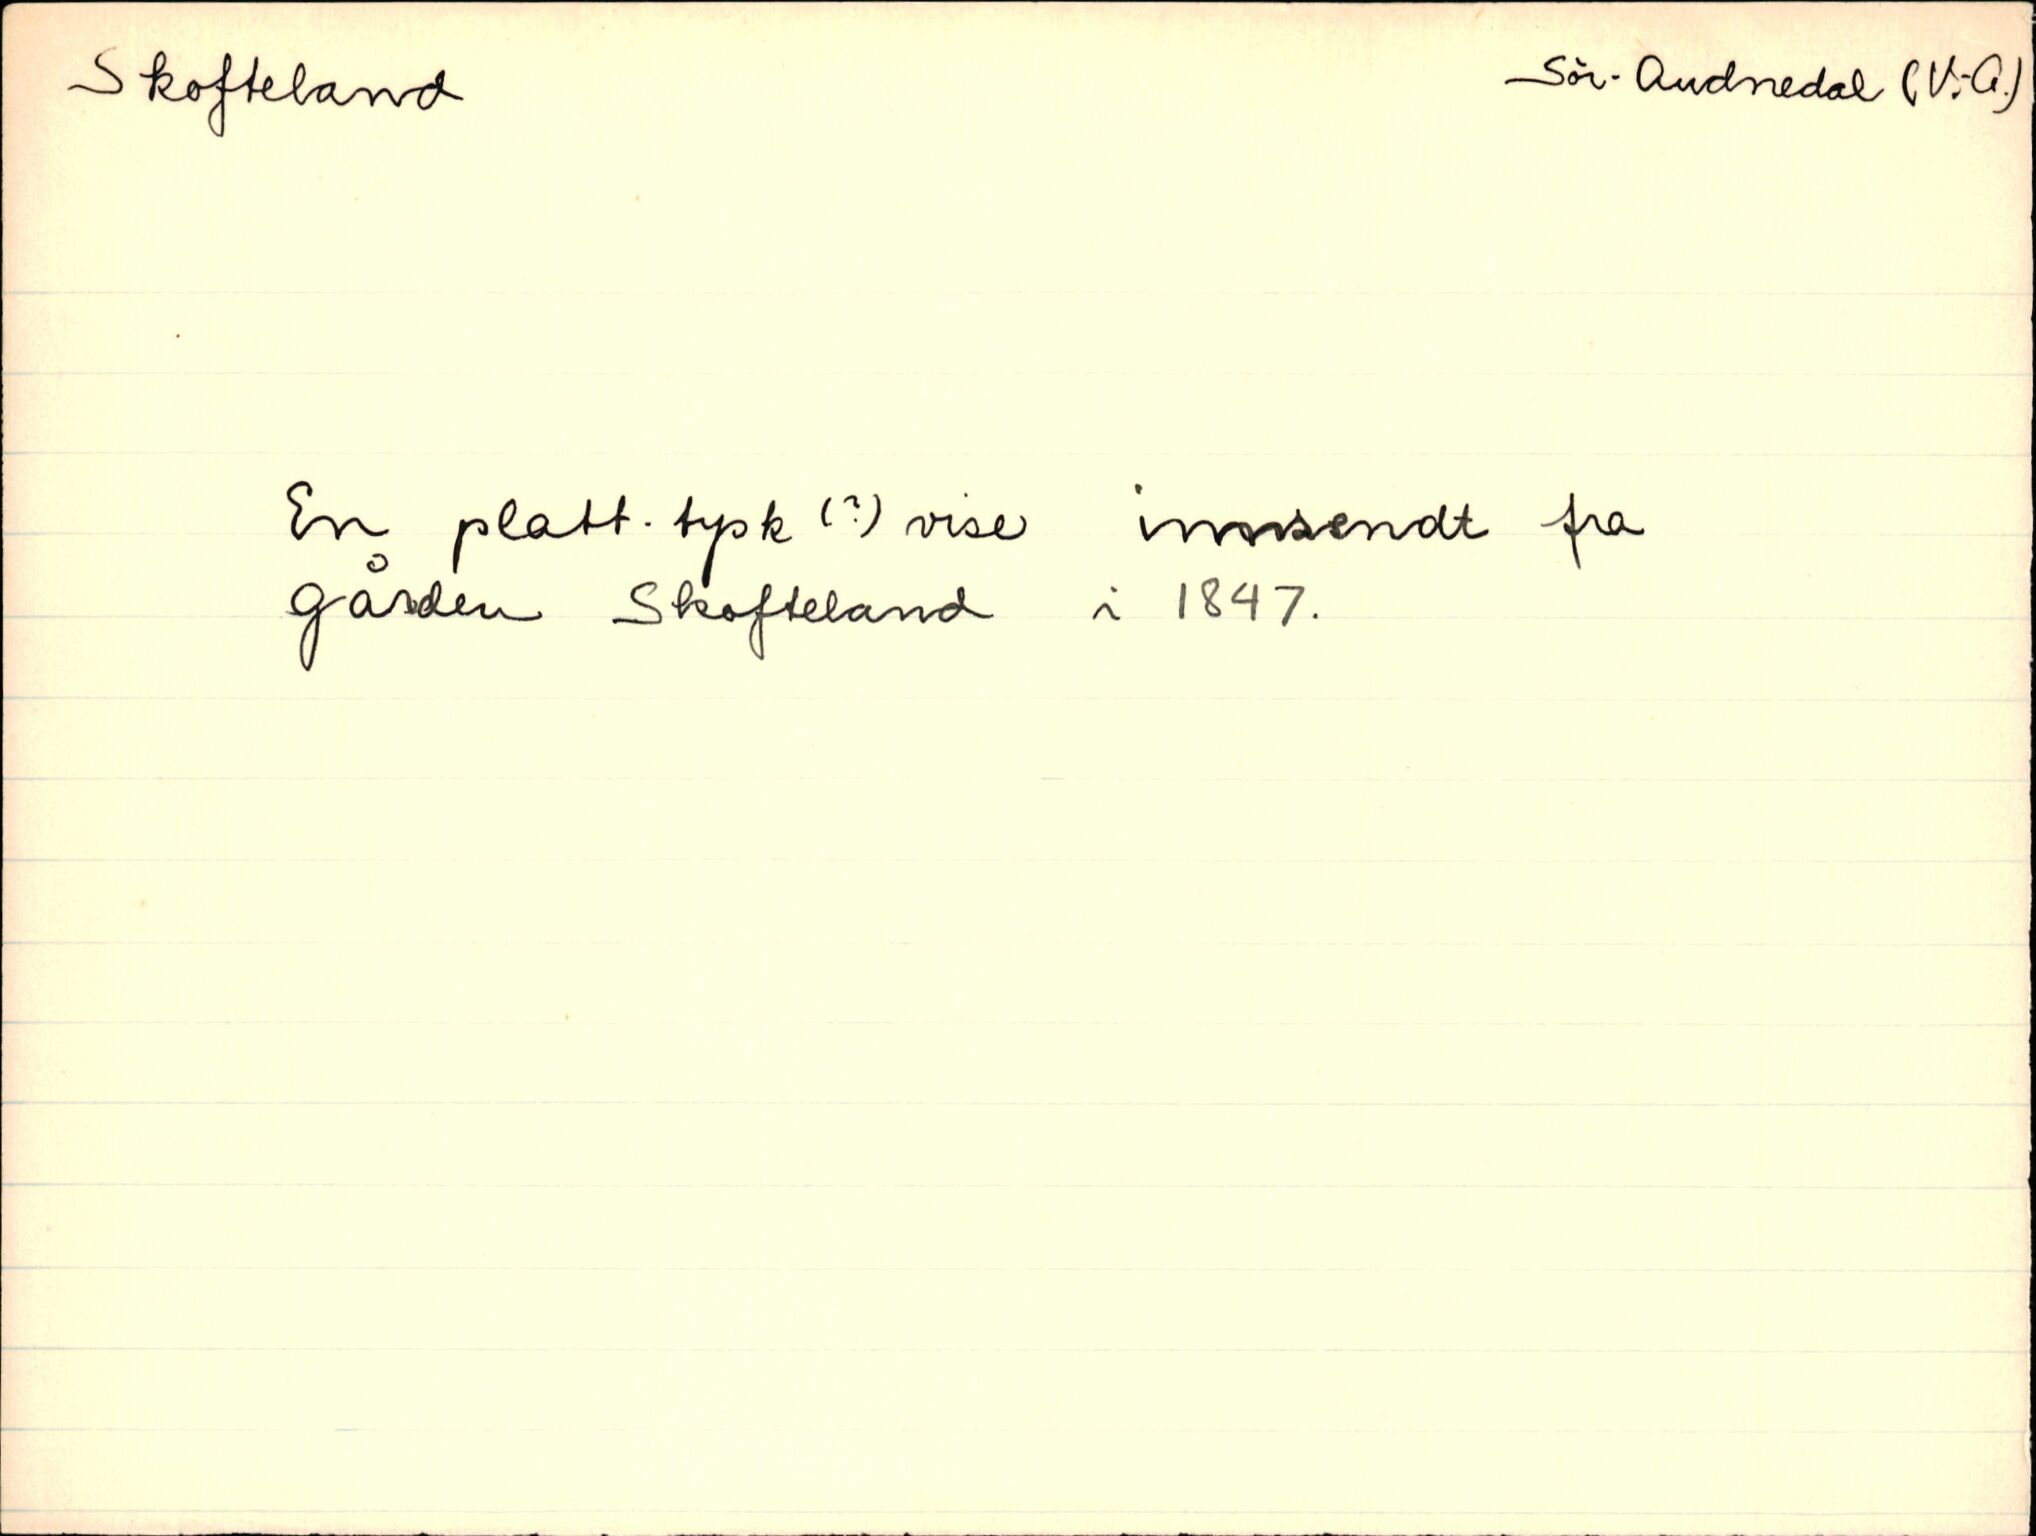 Skofteland
Sör-Audnedal (V.-A.)
En platt-tysk (?) vise innsendt fra
gården Skofteland i 1847.